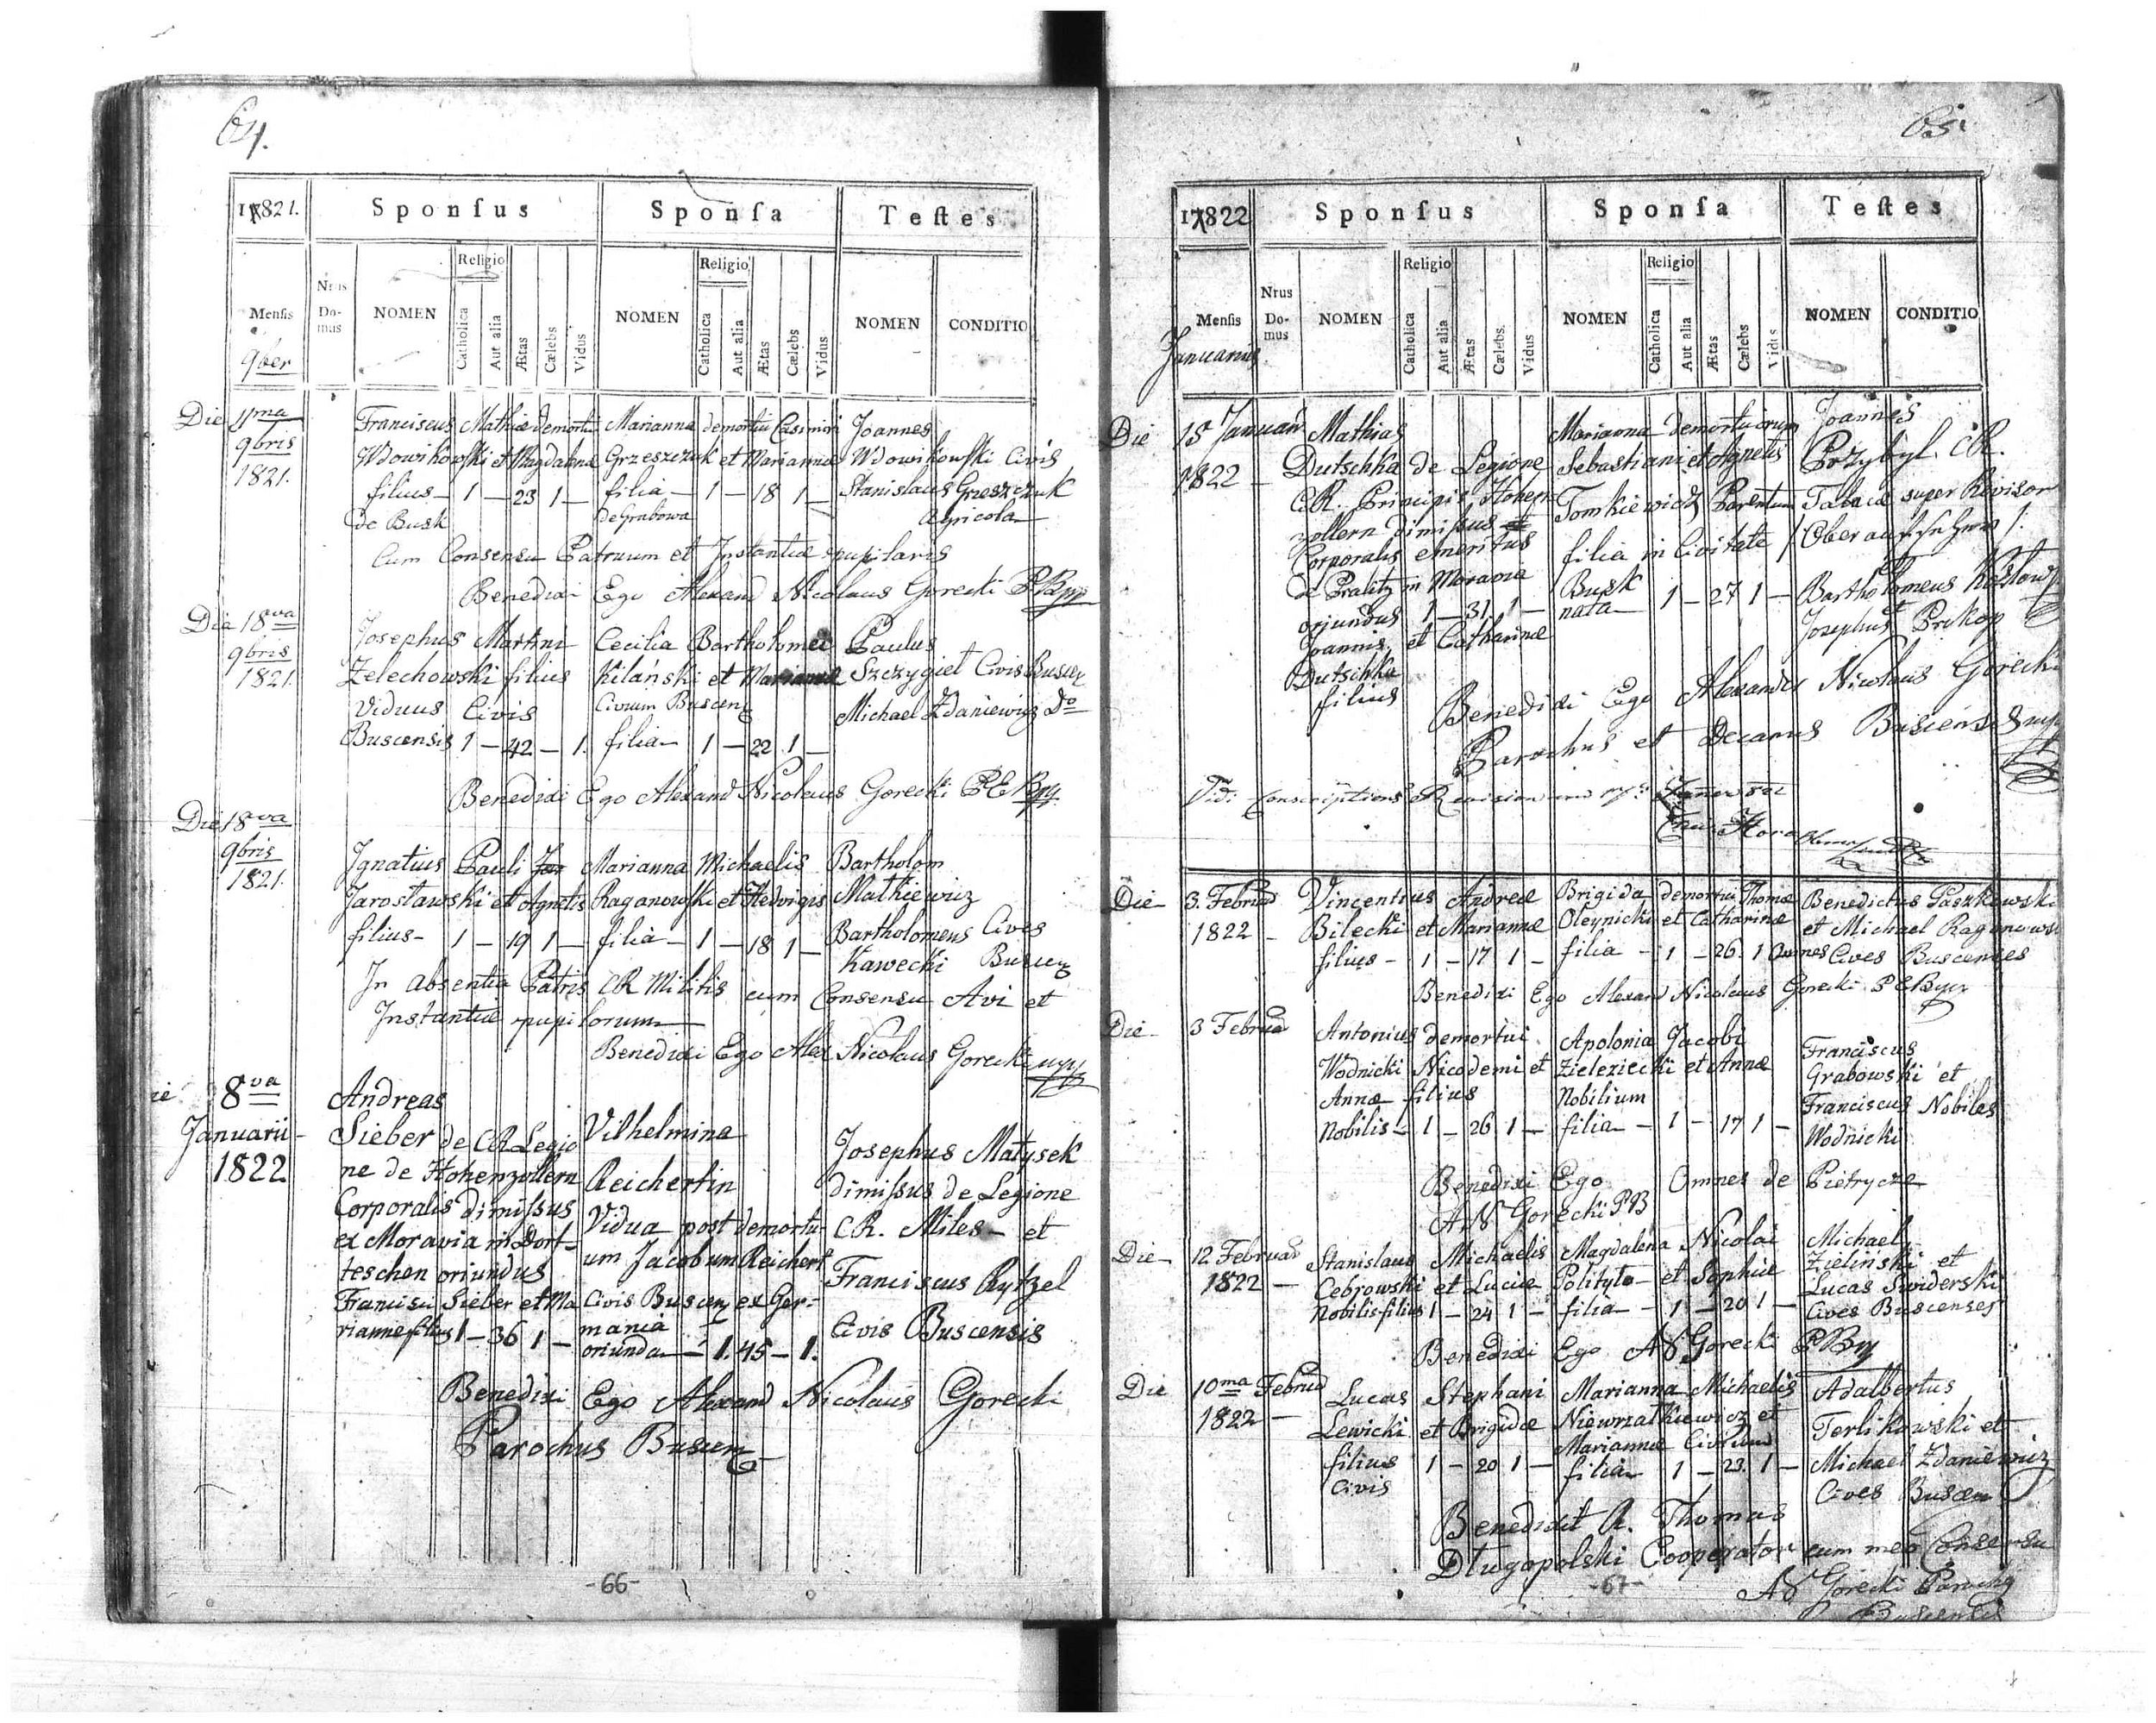 64.
17821.
Sponſus
Sponſa
Teſtes
Menſis
9ber
Nrus Do-mus
NOMEN
Religio
Catholica
Aut alia
Ætas
Cælebs
Vidus
NOMEN
Religio
Catholica
Aut alia
Ætas
Cælebs
Vidus
NOMEN
CONDITIO
Die 11ma 9bris 1821.
Franciscus Mathiæ demortui Marianna demortui Casimiri Joannes
Wdowikowſki et Magdalena Grzeszczuk et Mariannæ Wdowikowſki Civis
filius - 1 - 23 1 - filia - 1 - 18 1 - Stanislaus Greszczuk
de Busk de Grabowa Agricola
Cum Consensu Patruum et Instantiæ pupilaris
Benedixi Ego Alexand Nicolaus Gorecki
Die 18va 9bris 1821.
Josephus Martini Cecilia Bartholomei Paulus
Zelechowski filius Kilánski et Mariannæ Szczygieł Civis Buscen
Viduus Civis Civium Buscenz Michael Zdaniewicz Do
Buscensis 1 - 42 - 1. filia - 1 - 22 1 -
Benedixi Ego Alexand Nicolaus Gorecki
Die 18va 9bris 1821.
Ignatius Pauli Marianna Michaelis Bartholom
Jarosławski et Agnetis Raganowſki et Hedvigis Mathiewicz
filius - 1 - 19 1 - filia - 1 - 18 1 - Bartholomeus Cives
Kawecki
In absentia Patris CR Militis cum Consensu Avi et
Instantiæ pupilorum
Benedixi Ego Alex Nicolaus Gorecki
8va Januarii 1822
Andreas
Sieber de CR Legio Vilhelmina Josephus Matysek
ne de Hohenzollern Reichertin dimiſsus de Legione
Corporalis dimiſsus Vidua post demortu- CR. Miles - et
ex Moravia in Dort- um Jacobum Reichert Franciscus Rytzel
teschen oriundus
Francisci Sieber et Ma Civis Buscenz ex Ger= Civis Buscensis
riannæ filius 1 - 36 1 - mania
oriunda - 1. 45 - 1.
Benedixi Ego Alexand Nicolaus Gorecki
Parochus Buscenz
-66-
65.
17822
Sponſus
Sponſa
Teſtes
Menſis
Januarius
Nrus Do-mus
NOMEN
Religio
Catholica
Aut alia
Ætas
Cælebs.
Vidus
NOMEN
Religio
Catholica
Aut alia
Ætas
Cælebs
Vidus
NOMEN
CONDITIO
Die 15 Januar 1822 -
Mathias Marianna demortuorum Joannes
Dutschka de Legione Sebastiani et Agnetis Przybyl. CR.
CR. Principis Hohen Tomkiewicz Parentum Tabacæ super Revisor
zollern dimiſsus
Corporalis emeritus filia in Civitate
de Pralitz in Moravia Busk Bartholomeus
oriundus 1 - 31 1 - nata - 1 - 27 1 - et
Joannis et Catharinæ Josephus Prokop
Dutschka
filius
Benedixi Ego Alexander Nicolaus Gorecki
Parochus et Decanus Buscensis
Vidi Conscriptions Revision
Die - 3. Februar 1822 -
Vincentius Andreæ Brigida demortui Thomæ Benedictus Paszkowski
Bilecki et Mariannæ Oleynicki et Catharinæ et Michael Raganowski
filius - 1 - 17 1 - filia - 1 - 26. 1 Omnes Cives Buscenses
Benedixi Ego Alexand Nicolaus Gorecki
Die - 3 Februar
Antonius demortui Apolonia Jacobi Franciscus
Wodnicki Nicodemi et Zieleziecki et Annæ Grabowski et
Annæ filius Nobilium Franciscus Nobiles
Nobilis - 1 - 26 1 - filia - 1 - 17 1 - Wodnicki
Benedixi Ego Omnes de Pietrycze
AN Gorecki PB
Die - 12 Februar 1822 -
Stanislaus Michaelis Magdalena Nicolai Michael
Cebrowski et Luciæ Polityło et Sophiæ Zieliński et
Nobilis filius 1 - 24 1 - filia - 1 - 20 1 - Lucas Swiderski
Cives Buscenses
Benedixi Ego AN Gorecki
Die 10ma Februar 1822 -
Lucas Stephani Marianna Michaelis Adalbertus
Lewicki et Brigidæ Niewrzałkiewicz et Terlikowski et
filius 1 - 20 1 - Mariannæ Civium Michael Zdaniewicz
Civis filia 1 - 23. 1 - Cives Buscen
Benedixit R. Thomas
Długopolski Cooperator cum meo Consensu
AN Gorecki Parochus
Buscensis
-67-